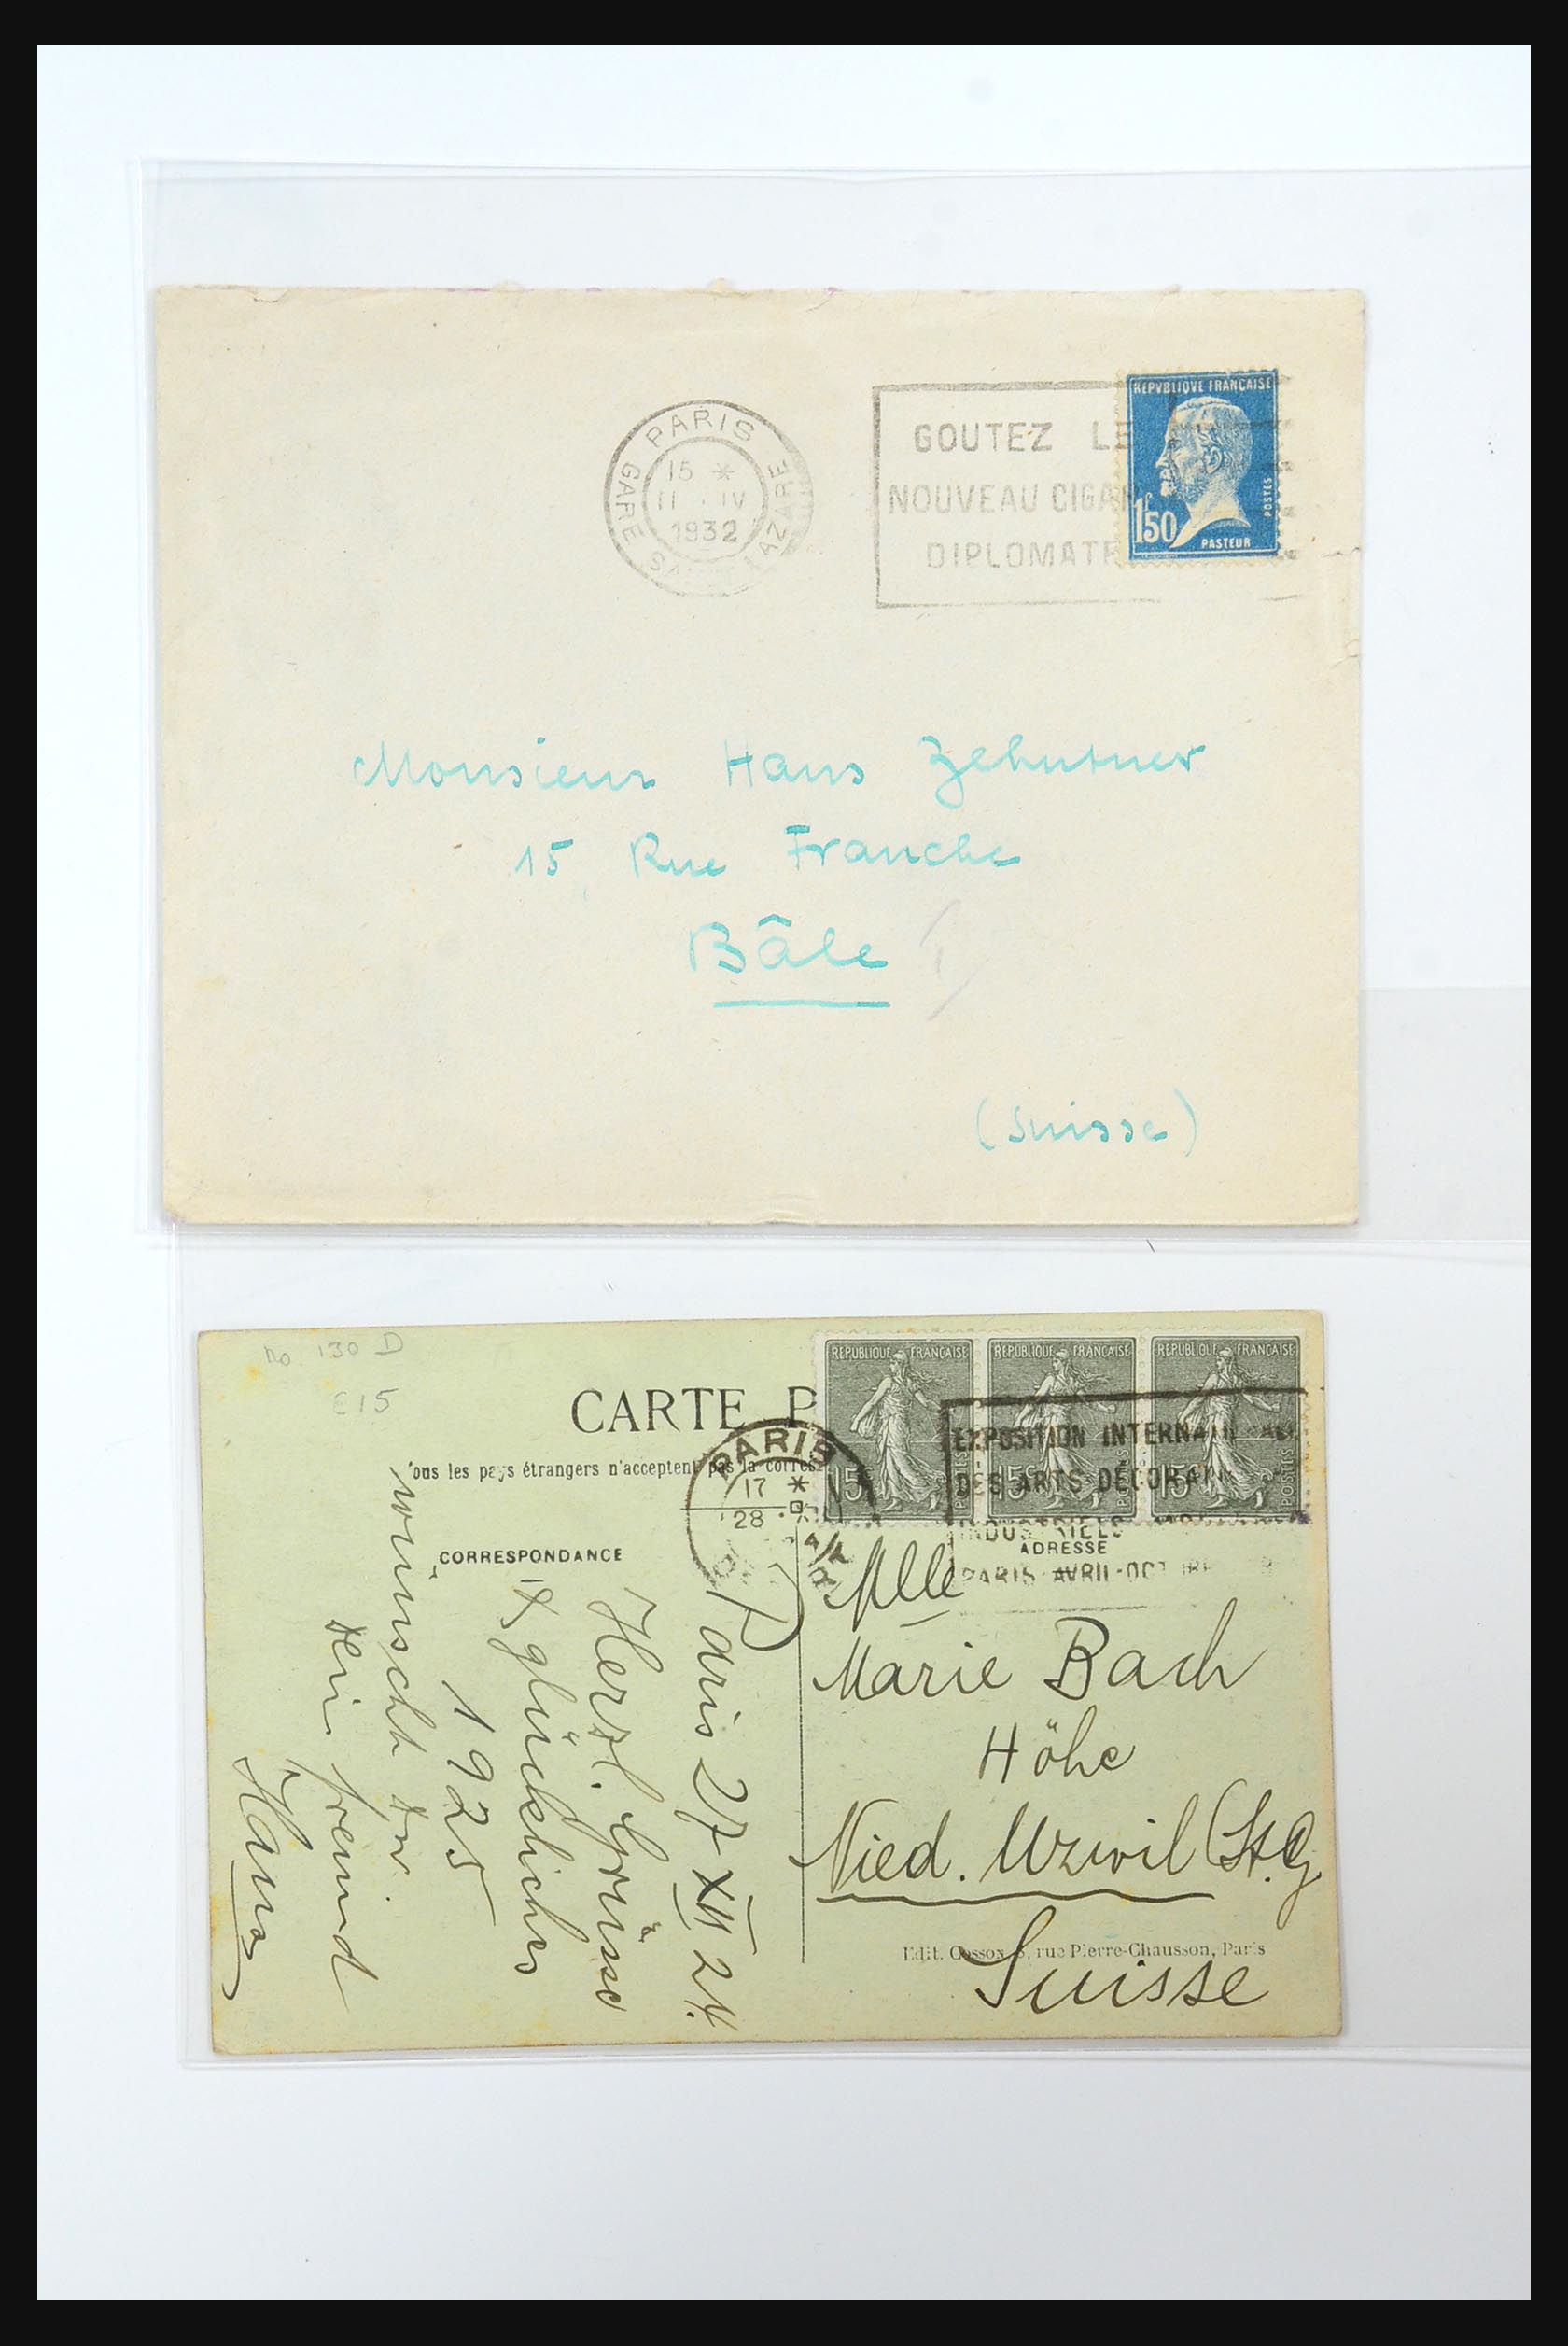 PARIS
15 *
11 · IV
1932
GARE
GOUTEZ LE
NOUVEAU CIGAR
DIPLOMATE
REPVBLIQVE FRANÇAISE
1f50
POSTES
PASTEUR
Monsieur Hans Zehntner
15, Rue Franche
Bâle
(Suisse)
No 130 D
€15
CARTE P
Tous les pays étrangers n'acceptent pas la corres
CORRESPONDANCE
PARIS
17 *
28
REPUBLIQUE FRANÇAISE
15c
POSTES
REPUBLIQUE FRANÇAISE
15c
POSTES
REPUBLIQUE FRANÇAISE
15c
POSTES
EXPOSITION INTERNATIONALE
DES ARTS DÉCORATIFS
INDUSTRIELS
PARIS AVRIL-OCTOBRE
ADRESSE
Paris 27 XII 24.
Herzl. Grüsse
& glückliches
1925
wünscht Dir.
Dein freund
Hans
Mlle
Marie Bach
Höhe
Nied. Uzwil (St. G
Suisse
Edit. Cossox, rue Pierre-Chausson, Paris